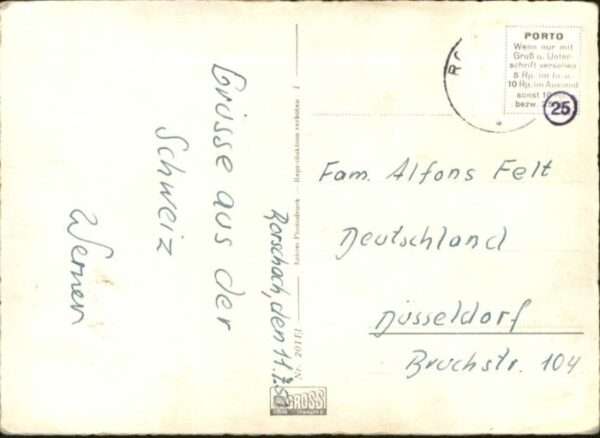 Grüsse aus der
Schweiz
Werner
Rorschach, den 11.
Nr. 20111
Reproduktion verboten
GROSS
PORTO
Wenn nur mit
Gruß u. Unter-
schrift versehen
5 Rp. im In- u.
10 Rp. im Ausland
sonst 10
bezw. 25
25
Fam. Alfons Felt
Deutschland
Düsseldorf
Bruchstr. 104